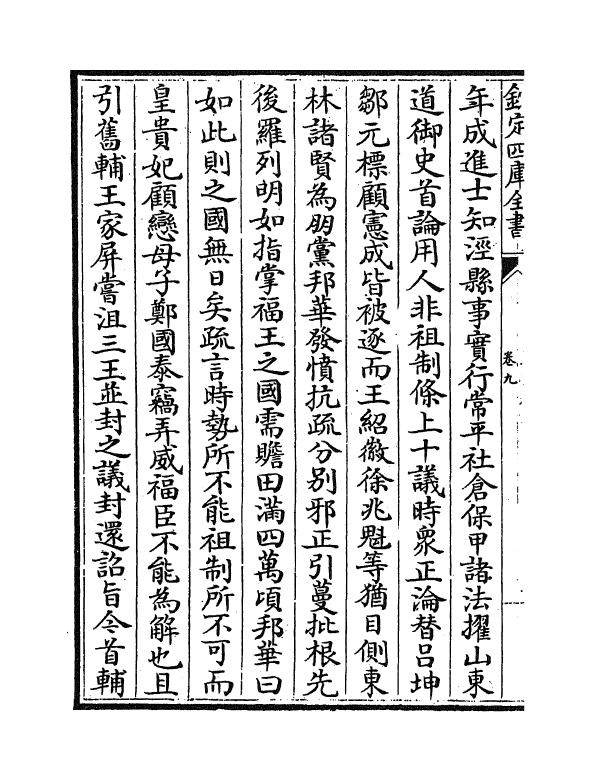 欽定四庫全書
卷九
年成進士知涇縣事實行常平社倉保甲諸法擢山東
道御史首論用人非祖制條上十議時衆正淪替吕坤
鄒元標顧憲成皆被逐而王紹徽徐兆魁等猶目側東
林諸賢為朋黨邦華發憤抗疏分别邪正引蔓批根先
後羅列明如指掌福王之國需贍田滿四萬頃邦華曰
如此則之國無日矣疏言時勢所不能祖制所不可而
皇貴妃顧戀母子鄭國泰竊弄威福臣不能為解也且
引舊輔王家屏嘗沮三王並封之議封還詔旨今首輔